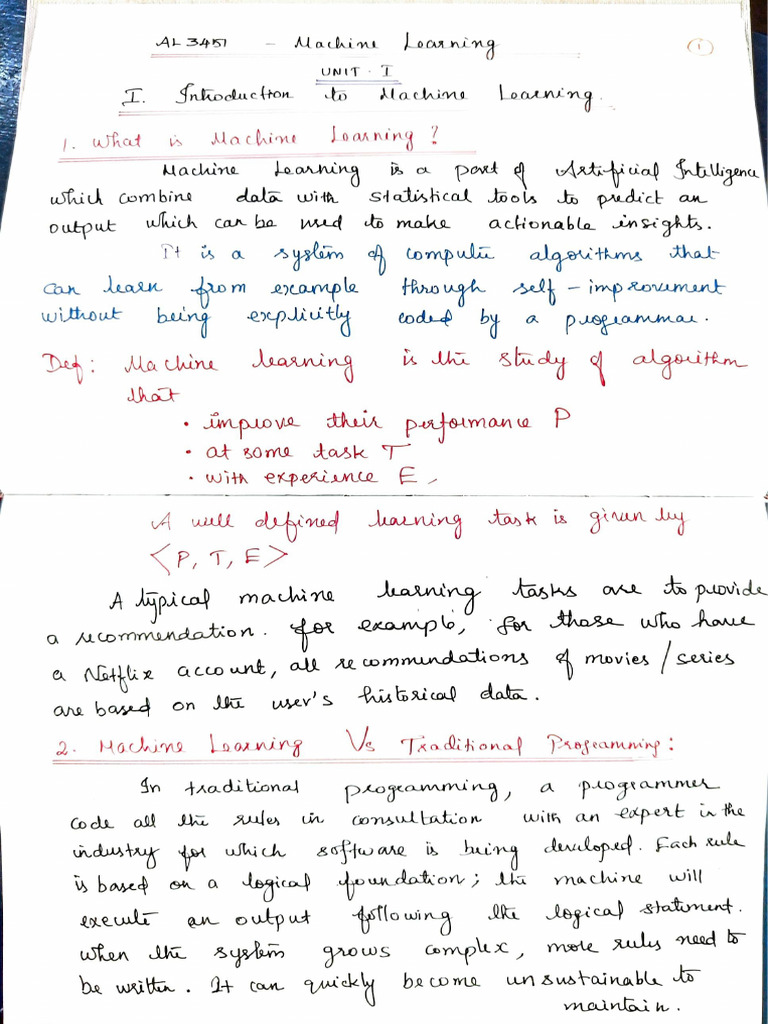 AL 3451 - Machine Learning
1
UNIT - I
I. Introduction to Machine Learning.
1. What is Machine Learning?
Machine Learning is a part of Artificial Intelligence
which combine data with statistical tools to predict an
output which can be used to make actionable insights.
It is a system of computer algorithms that
can learn from example through self-improvement
without being explicitly coded by a programmar.
Def: Machine learning is the study of algorithm
that
• improve their performance P
• at some task T
• with experience E,
A well defined learning task is given by
<P, T, E>
A typical machine learning tasks are to provide
a recommendation. For example, for those who have
a Netflix account, all recommendations of movies/series
are based on the user's historical data.
2. Machine Learning Vs Traditional Programming:
In traditional programming, a programmer
code all the rules in consultation with an expert in the
industry for which software is being developed. Each rule
is based on a logical foundation; the machine will
execute an output following the logical statement.
When the system grows complex, more rules need to
be written. It can quickly become unsustainable to
maintain.